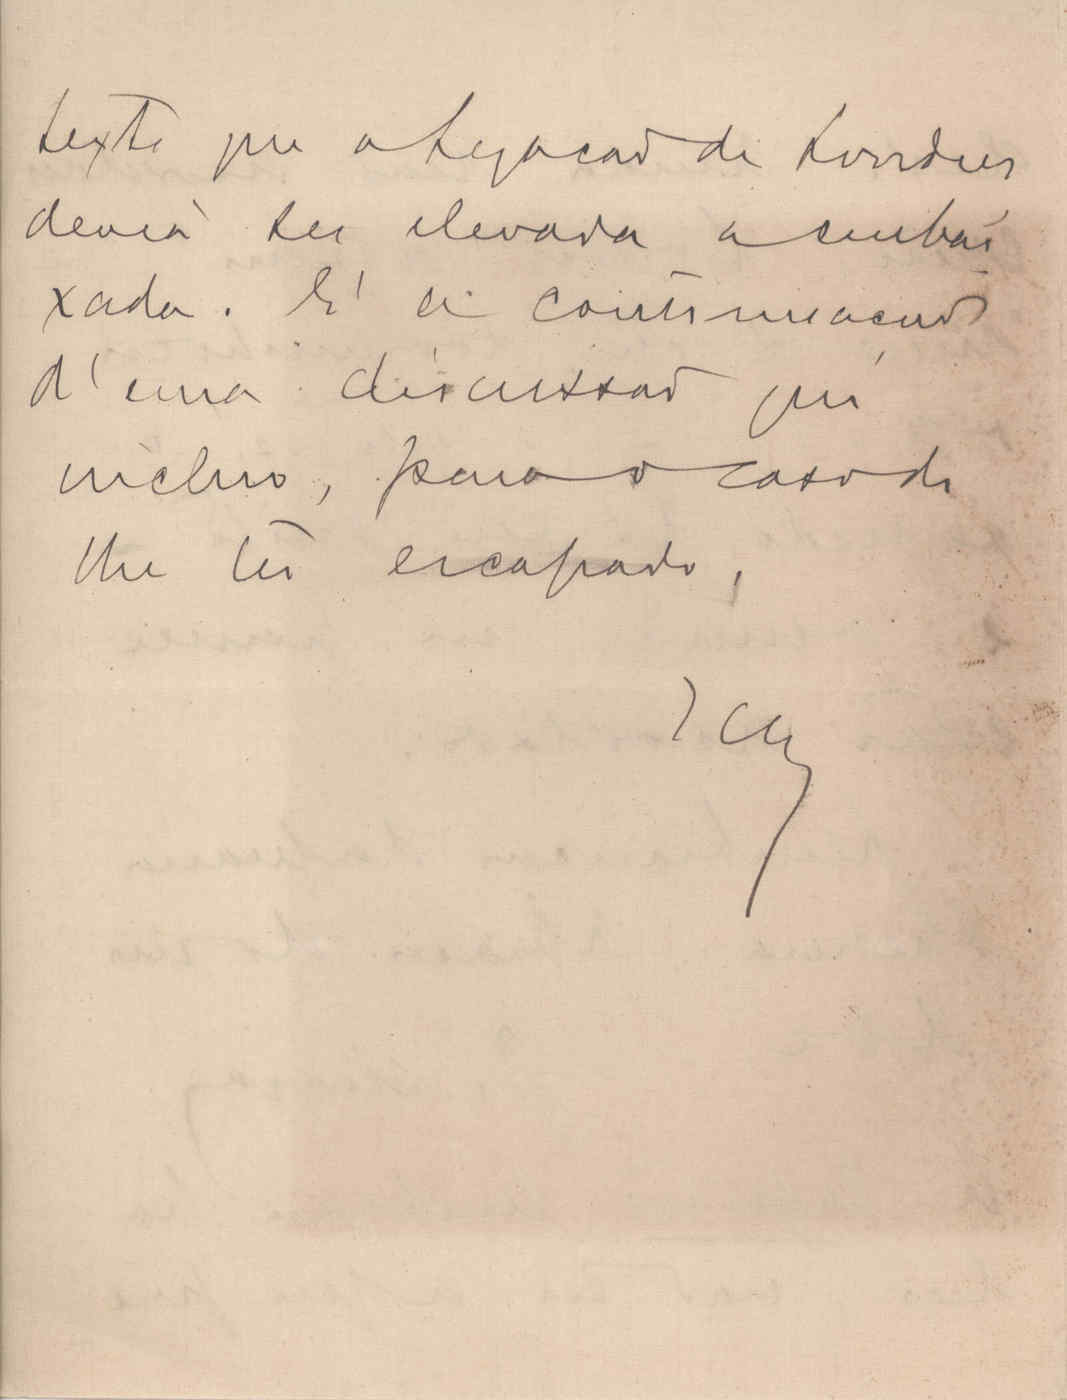 texto que a Legação de Londres
devia ser elevada a embai
xada. É a continuação
d'uma discussão que
incluo, para o caso de
lhe ter escapado.